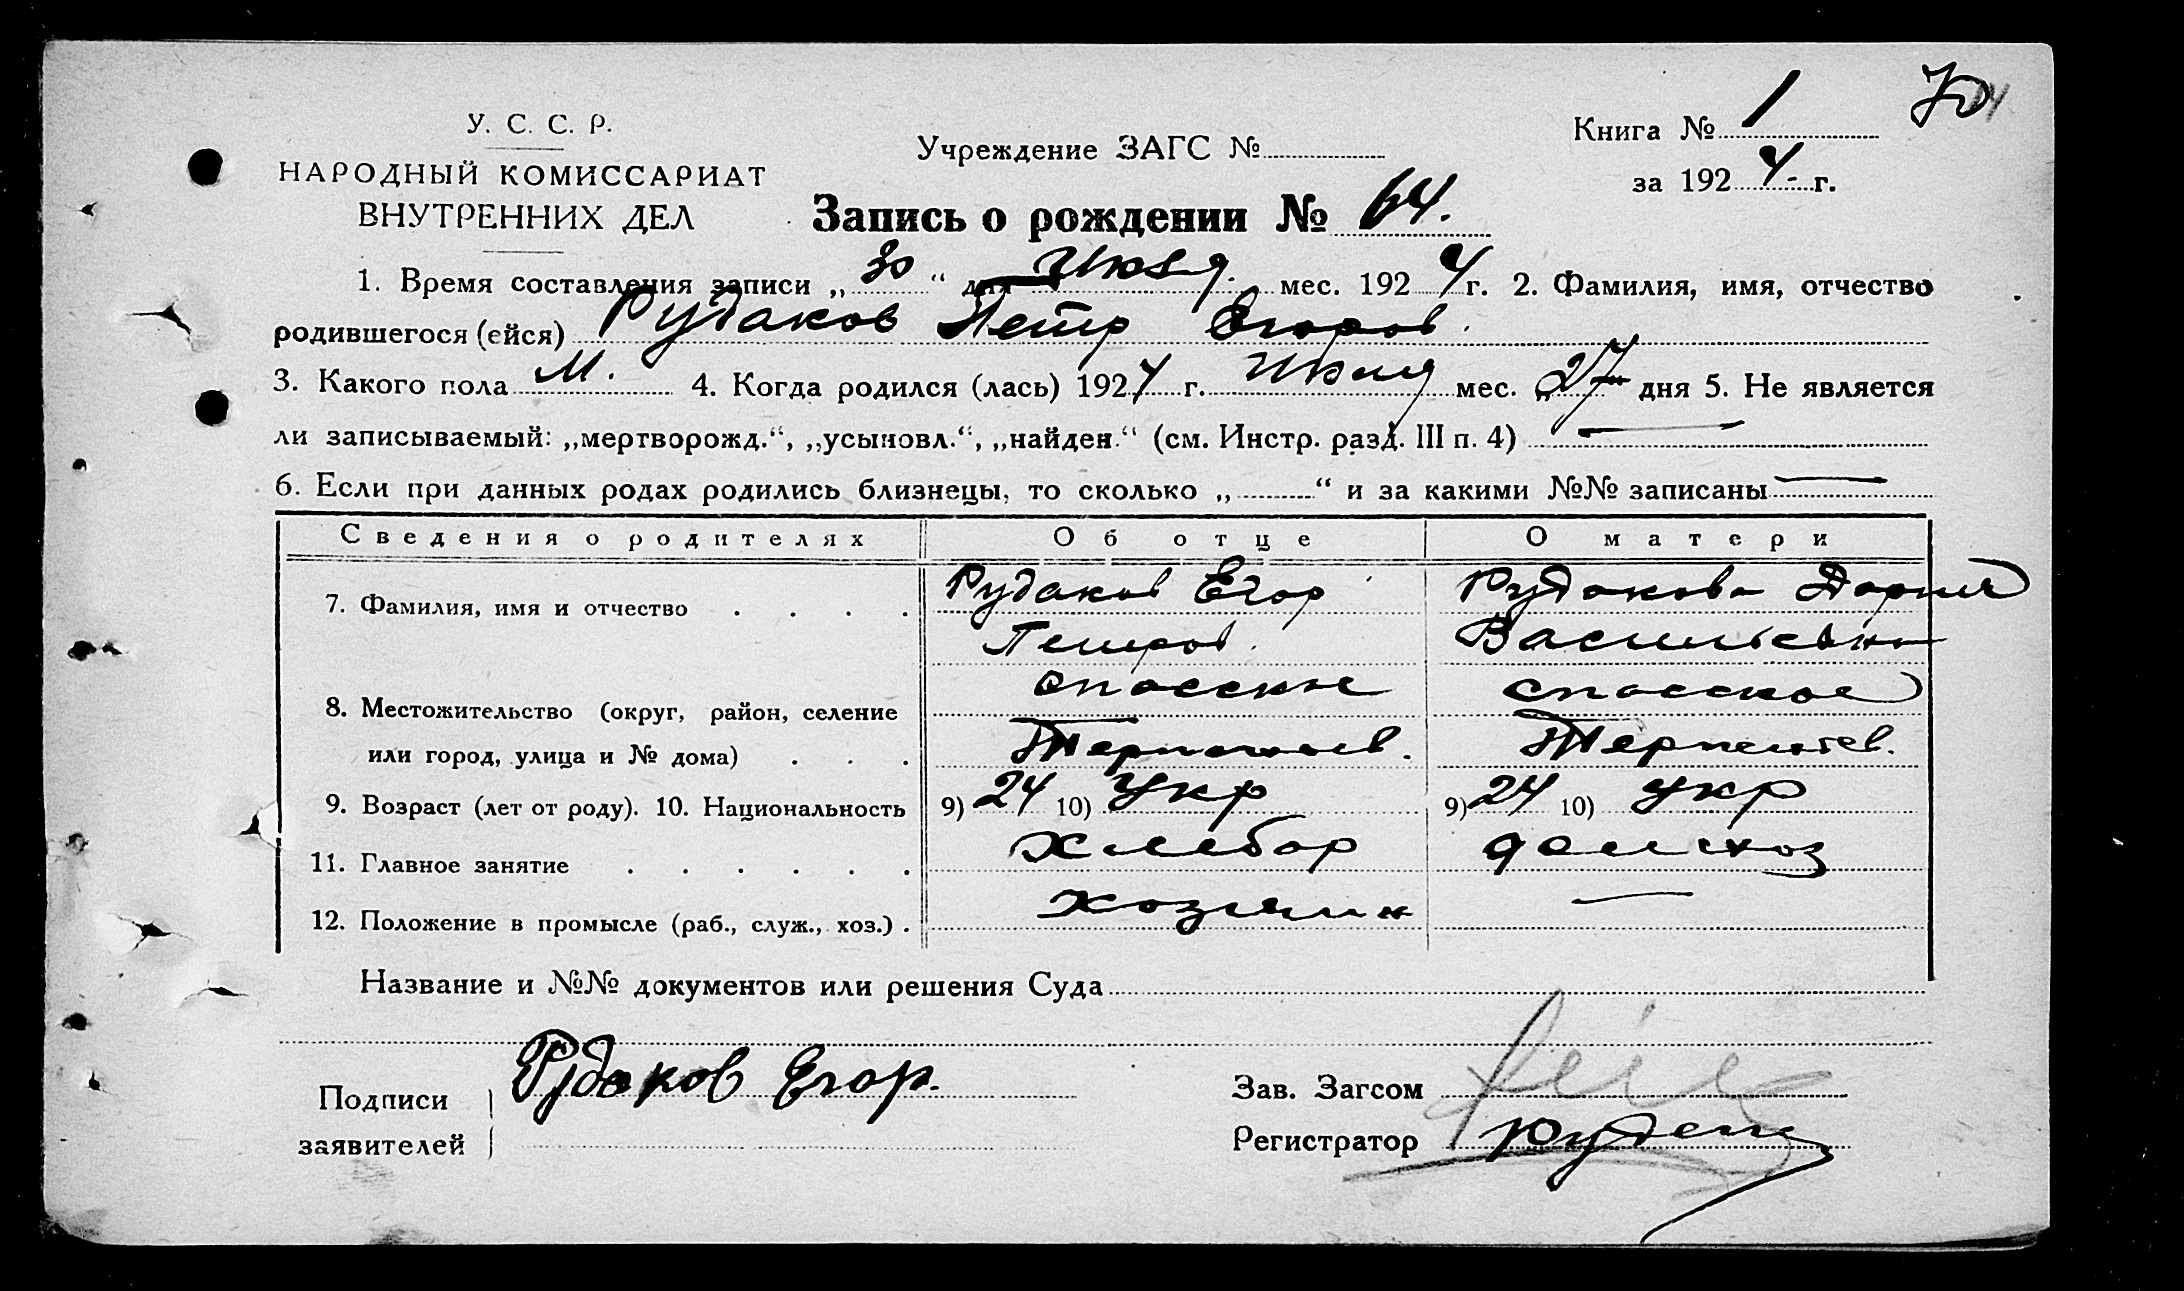 У. С. С. Р.
НАРОДНЫЙ КОМИССАРИАТ
ВНУТРЕННИХ ДЕЛ
Учреждение ЗАГС №
Книга № 1 70
за 1924 г.
Запись о рождении № 64.
1. Время составления записи „30“ дня Июля мес. 1924 г. 2. Фамилия, имя, отчество
родившегося (ейся) Рудаков Петр Егоров.
3. Какого пола М. 4. Когда родился (лась) 1924 г. Июля мес. „27 дня 5. Не является
ли записываемый: „мертворожд.“, „усыновл.“, „найден.“ (см. Инстр. разд. III п. 4) —
6. Если при данных родах родились близнецы, то сколько „ “ и за какими №№ записаны —
Сведения о родителях Об отце О матери
7. Фамилия, имя и отчество Рудаков Егор Рудакова Дария
Петров. Васильевна
8. Местожительство (округ, район, селение Спасское Спасское
или город, улица и № дома) Терпеньев. Терпеньев.
9. Возраст (лет от роду). 10. Национальность 9) 24 10) Укр 9) 24 10) Укр
11. Главное занятие Хлебор домхоз
12. Положение в промысле (раб., служ., хоз.) Хозяин —
Название и №№ документов или решения Суда
Подписи Рудаков Егор.
заявителей
Зав. Загсом
Регистратор